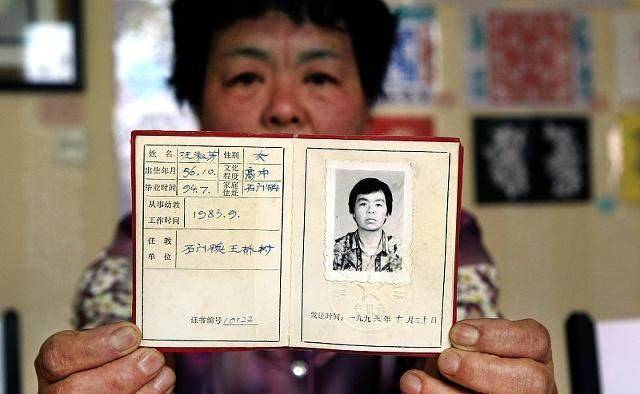 姓名 性别 女
出生年月 56.10. 文化程度 高中
毕业时间 94.7. 家庭住址 石门镇
从事幼教工作时间 1983.9.
任教单位 石门镇王桥村
证书编号 10122
发证时间：一九九 年十月 十日